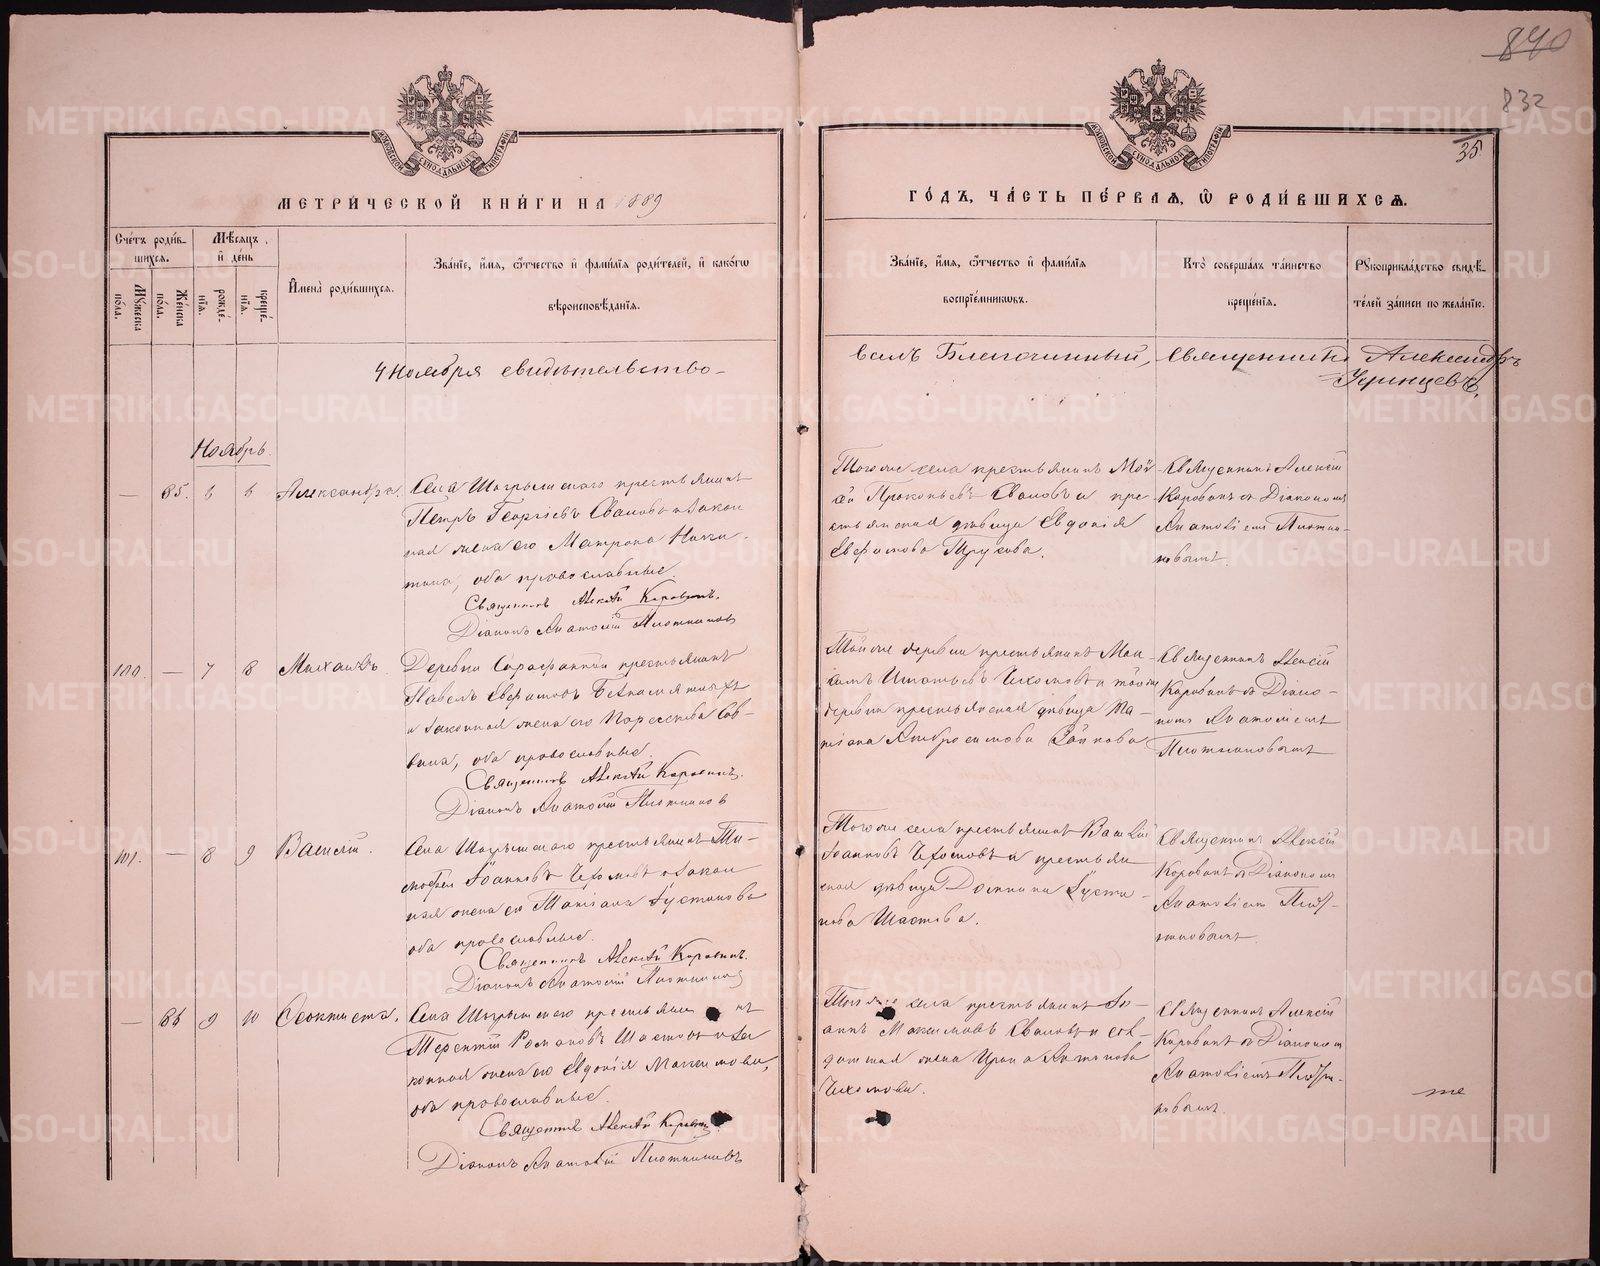 840
832
35
МОСКОВСКОЙ СѴНОДАЛЬНОЙ ТИПОГРАФІИ
МОСКОВСКОЙ СѴНОДАЛЬНОЙ ТИПОГРАФІИ
МЕТРИ́ЧЕСКОЙ КНИ́ГИ НА 1889
ГО́ДЪ, ЧА́СТЬ ПЕ́РВАѦ, Ѡ РОДИ́ВШИХСѦ.
Сче́тъ роди́в-
шихсѧ.
Мѣ́сѧцъ
и҆ де́нь
Мꙋ́жеска
по́ла.
Же́нска
по́ла.
рожде́-
нїѧ.
креще́-
нїѧ.
И҆мена̀ роди́вшихсѧ.
Зва́нїе, и҆́мѧ, ѻ҆́тчество и҆ фами́лїѧ роди́телей, и҆ како́гѡ
вѣроисповѣ́данїѧ.
Зва́нїе, и҆́мѧ, ѻ҆́тчество и҆ фами́лїѧ
воспрїе́мникѡвъ.
Кто̀ соверша́лъ та́инство
креще́нїѧ.
Рꙋкоприкла́дство свидѣ́-
телей за́писи по жела́нїю.
4 Ноября свидѣтельство-
валъ Благочинный, Священникъ Александръ
Ноябрь.
— 85. 6 6 Александра.
Села Шогрышскаго крестьянинъ
Петръ Георгіевъ Ивановъ и закон
ная жена его Матрона Ники-
тина, оба православные.
Священникъ Алексѣй Коровинъ.
Діаконъ Анатолій Плотниковъ
Тогоже села крестьянинъ Мой
сей Прокопьевъ Ивановъ и кре-
стьянская дѣвица Евдокія
Священникъ Алексій
Коровинъ съ Діакономъ
Анатоліемъ Плотни-
ковымъ.
100. — 7 8 Михаилъ
Деревни крестьянинъ
Павелъ
и законная жена его Параскева Сав-
вина, оба православные.
Священникъ Алексѣй Коровинъ.
Діаконъ Анатолій Плотниковъ
Тойже деревни крестьянинъ
Игнатьевъ и тойже
деревни крестьянская дѣвица Та-
тіана Амбросимова
Священникъ Алексій
Коровинъ съ Діако-
номъ Анатоліемъ
Плотниковымъ
101. — 8 9 Василій.
Села Шогрышскаго крестьянинъ Ти-
мофей Іоанновъ и закон
ная жена его Татіана Іустинова
оба православные.
Священникъ Алексѣй Коровинъ.
Діаконъ Анатолій Плотниковъ
Тогоже села крестьянинъ Василій
Іоанновъ и крестьян
ская дѣвица Домника Іусти-
нова
Священникъ Алексій
Коровинъ съ Діакономъ
Анатоліемъ Плот-
никовымъ
— 86 9 10 Ѳеоктиста.
Села Шогрышскаго крестьянинъ
Терентій Романовъ и за
конная жена его Евдокія Максимова,
оба православные.
Священникъ Алексѣй Коровинъ
Діаконъ Анатолій Плотниковъ
Тогоже села крестьянинъ Іо-
аннъ Максимовъ Ивановъ и
жена
Священникъ Алексій
Коровинъ съ Діакономъ
Анатоліемъ Плотни-
ковымъ.
METRIKI.GASO-URAL.RU